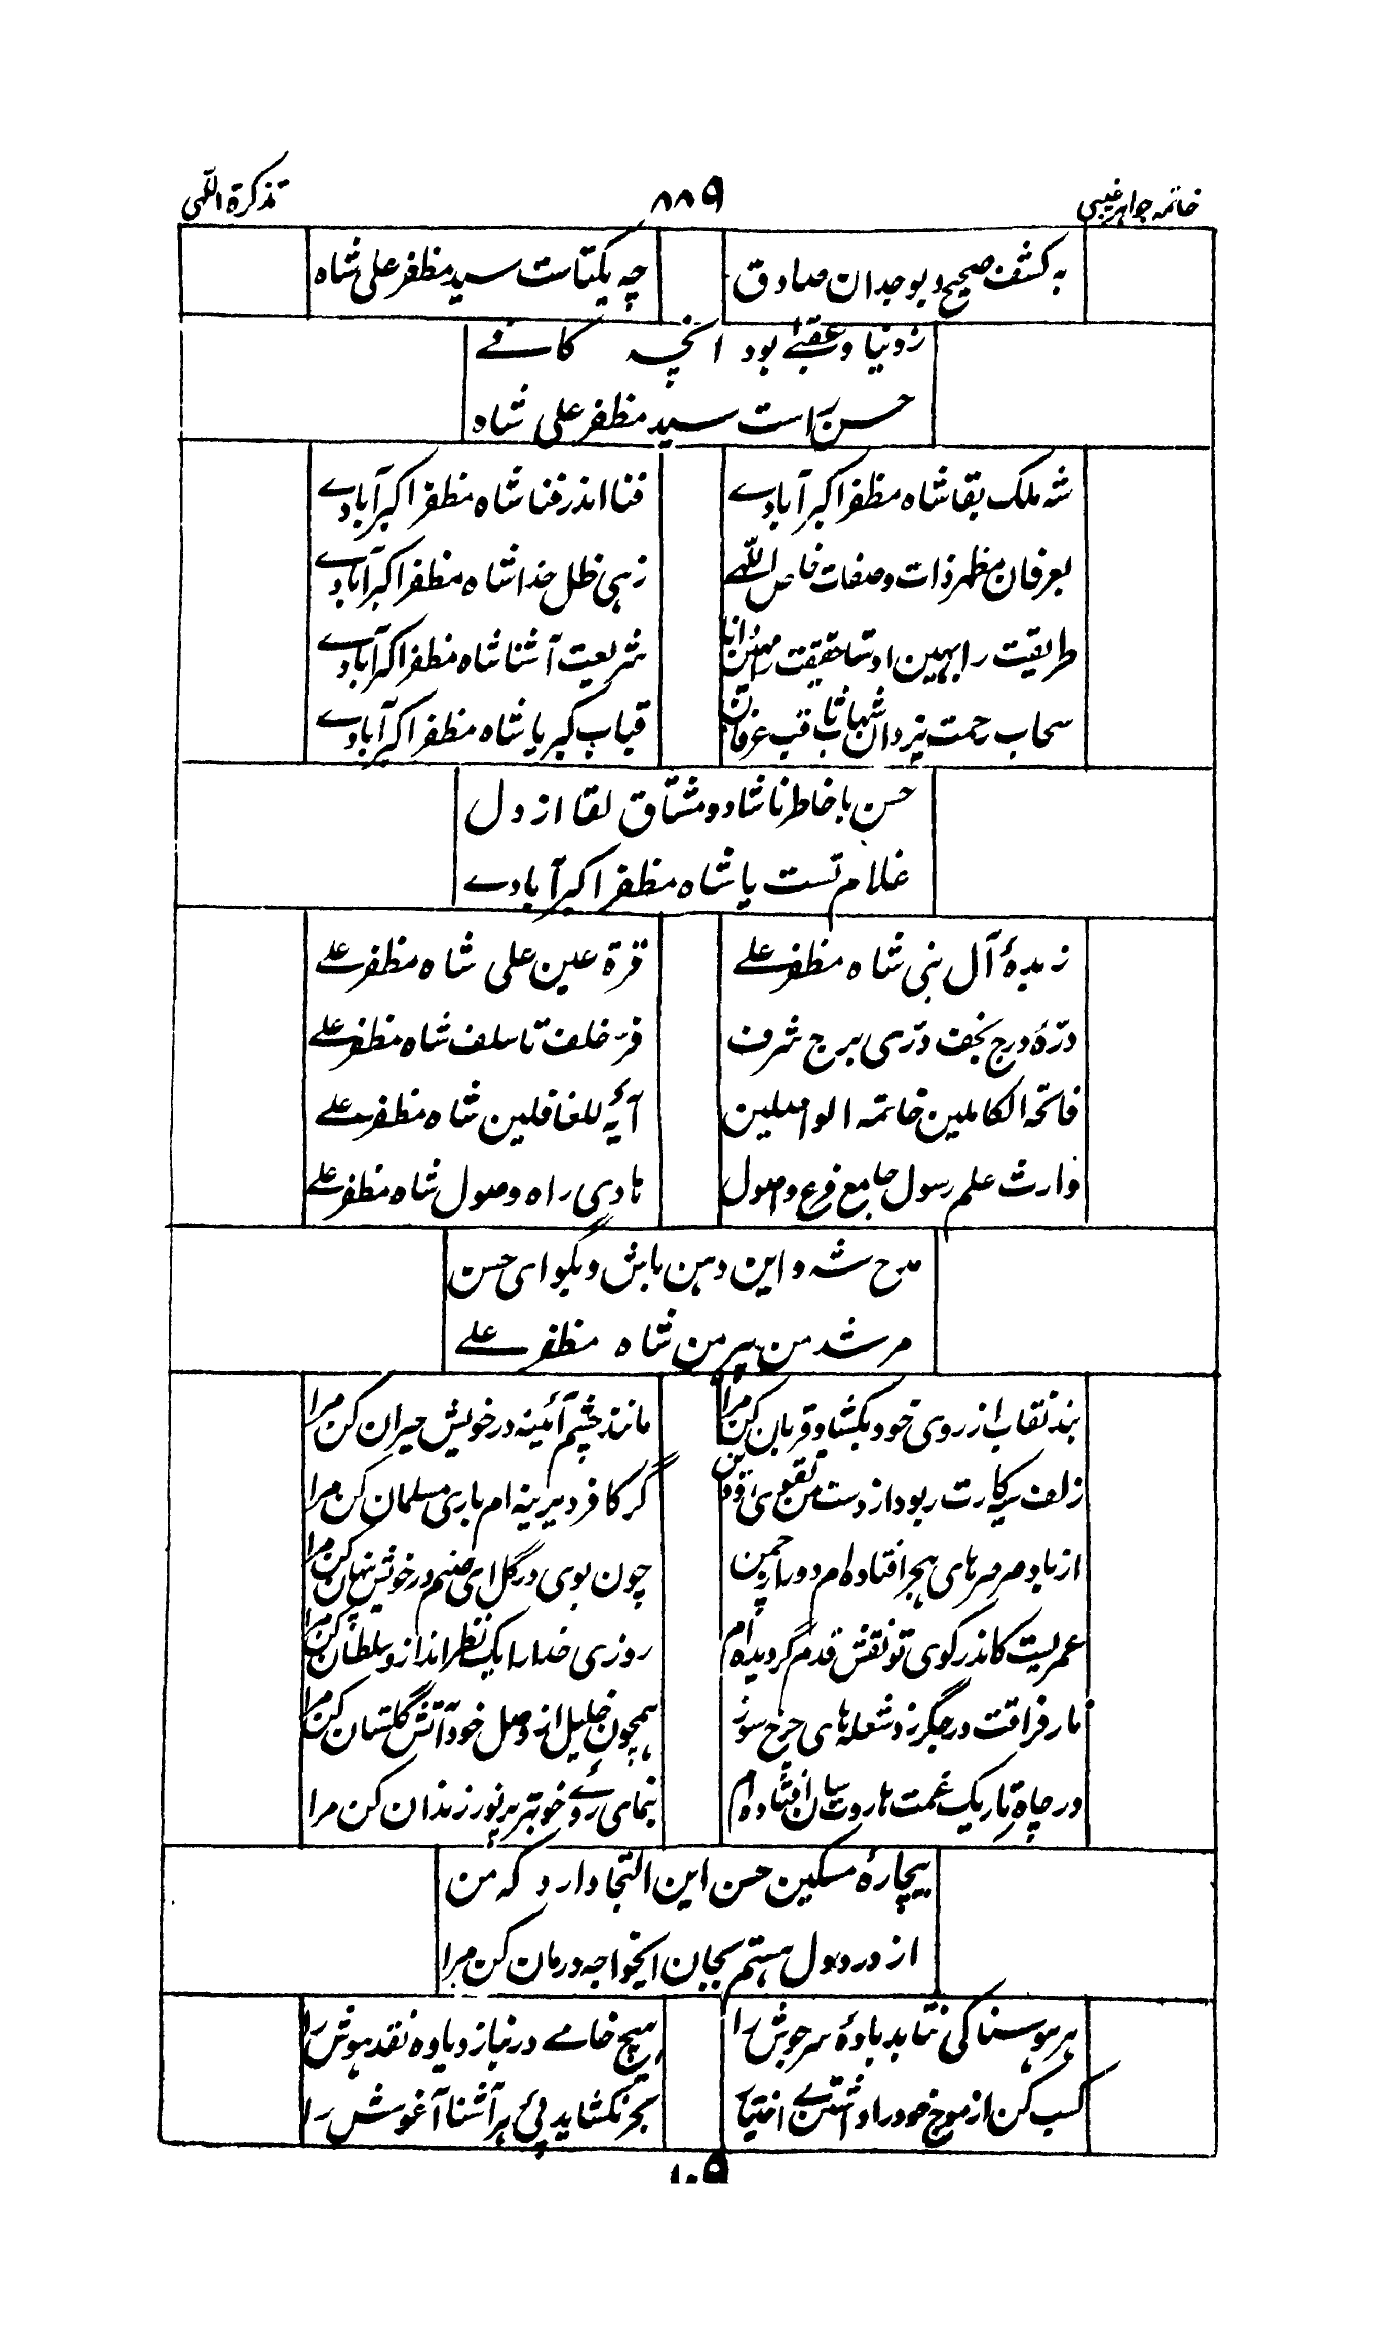 خاتمہ جواہر غیبی ۸۸۹ تذکرۃ اللّٰہی
بہ کشف صحیح و بوجدان صادق چہ یکتاست سید مظفر علی شاہ
ز دنیا و عقبےٰ بود آنچہ کافے
حسن راست سید مظفر علی شاہ
شہ ملک بقا شاہ مظفر اکبرآبادے فنا اندر فنا شاہ مظفر اکبرآبادے
بعرفان مظہر ذات و صفات خاص اللّٰہے زہی ظل خدا شاہ مظفر اکبرآبادے
طریقت را بہین اوستا حقیقت را مہین دانا شریعت آشنا شاہ مظفر اکبرآبادے
سحاب رحمت یزدان شہاب ثاقب عرفان قباب کبریا شاہ مظفر اکبرآبادے
حسن با خاطر ناشاد و مشتاق لقا از دل
غلام تست یا شاہ مظفر اکبرآبادے
زبدۂ آل نبی شاہ مظفر علے قرۃ عین علی شاہ مظفر علے
درّۂ درج نجف درّی برج شرف فرّ خلف تا سلف شاہ مظفر علے
فاتحۃ الکاملین خاتمہ الواصلین آیۂ للغافلین شاہ مظفر علے
وارث علم رسول جامع فرع و اصول ہادی راہ وصول شاہ مظفر علے
مدح شہ و این دہن باش و بگو ای حسن
مرشد من پیر من شاہ مظفر علے
بند نقاب از روی خود بکشا و قربان کن مرا مانند چشم آئینہ در خویش حیران کن مرا
زلف سیہ کارت ربود از دست من گر کافر دیرینہ ام باری مسلمان کن مرا
از باد صرصرہای ہجر افتادہ ام دور از چمن چون بوی در گل ای صنم در خویش پنہان کن مرا
عمریست کاندر کوی تو نقش قدم گردیدہ ام روزی خدا را یک نظر انداز و سلطان کن مرا
نار فراقت در جگر زد شعلہ ہای چرخ سوز ہمچون خلیل از وصل خود آتش گلستان کن مرا
در چاہ تاریک غمت ہاروت سان افتادہ ام بنمای روے خوبتر پر نور زندان کن مرا
بیچارۂ مسکین حسن این التجا دارد کہ من
از درد دل ہستم بجان ایخواجہ درمان کن مرا
ہر ہوسناکی نتابد بادۂ سرجوش را ہیچ خامے در نیازد یاوہ نقد ہوش را
کسب کن از موج خود را داشتن بے اختیار بحر نکشاید پئ ہر آشنا آغوش را
۱۰۵